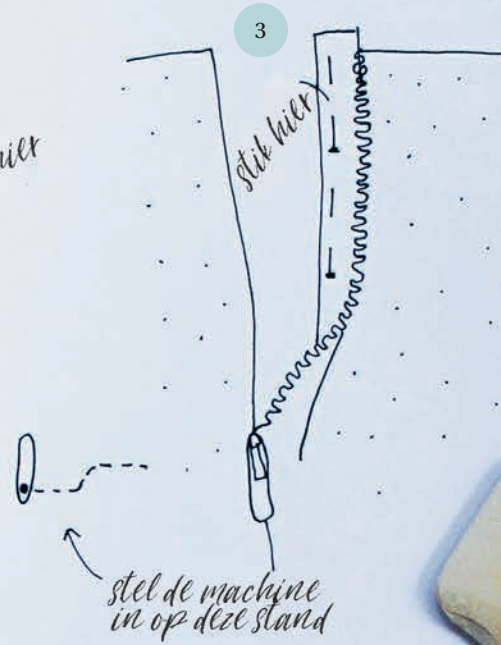 3
stik hier
stel de machine
in op deze stand